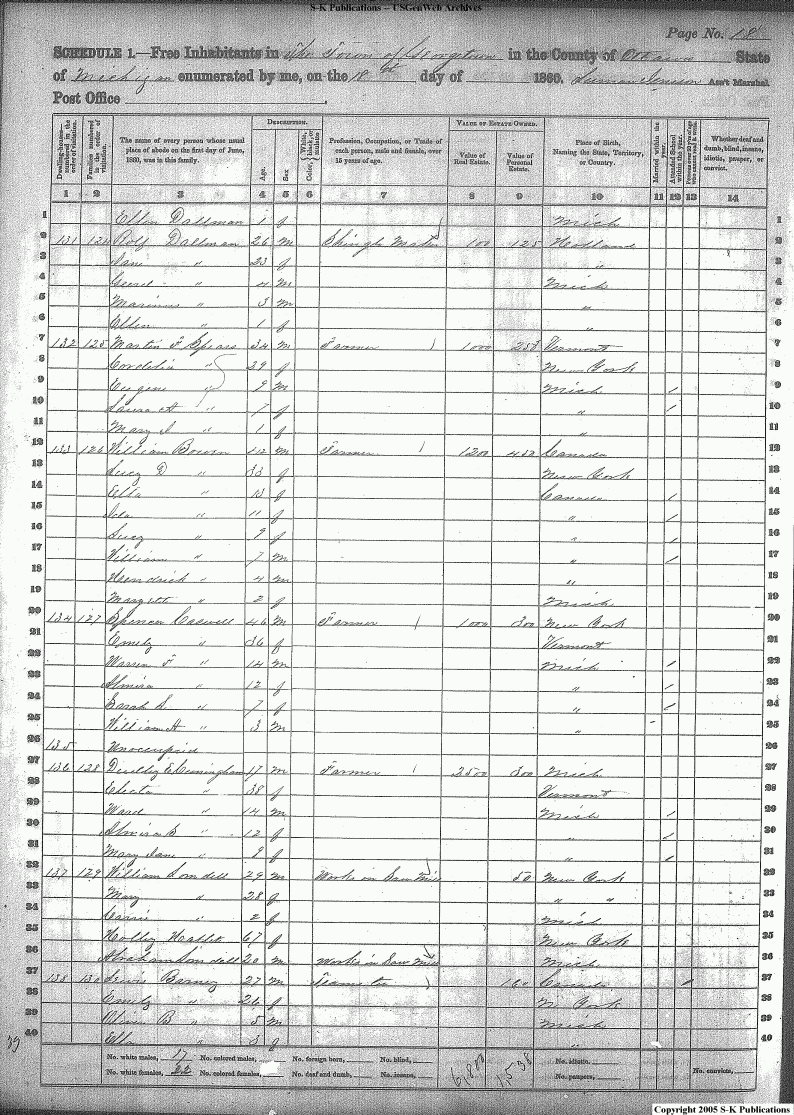 S-K Publications – USGenWeb Archives
Page No. 18
SCHEDULE 1.—Free Inhabitants in The Town of Georgetown in the County of Ottawa State
of Michigan enumerated by me, on the 18th day of 1860. Ass't Marshal.
Post Office
Dwelling-houses—numbered in the order of visitation. Families numbered in the order of visitation. The name of every person whose usual place of abode on the first day of June, 1860, was in this family. DESCRIPTION. Age. Sex. Color, {White, black, or mulatto. Profession, Occupation, or Trade of each person, male and female, over 15 years of age. VALUE OF ESTATE OWNED. Value of Real Estate. Value of Personal Estate. Place of Birth, Naming the State, Territory, or Country. Married within the year. Attended School within the year. Persons over 20 y'rs of age who cannot read & write. Whether deaf and dumb, blind, insane, idiotic, pauper, or convict.
1 2 3 4 5 6 7 8 9 10 11 12 13 14
1 Ellen Dallman 1 f Mich 1
2 131 124 Rolf Dallman 26 m Shingle Maker 100 125 Holland 2
3 Jane " 23 f " 3
4 " 4 m Mich 4
5 Marinus " 3 m " 5
6 Ellen " 1 f " 6
7 132 125 Martin F Spears 34 m Farmer 1000 253 Vermont 7
8 Cordelia " 29 f New York 8
9 Eugene " 9 m Mich / 9
10 Laura A " 7 f " / 10
11 Mary " 1 f " 11
12 133 126 William Bowen 42 m Farmer 1200 Canada 12
13 Lucy D " 33 f New York 13
14 Ella " 13 f Canada / 14
15 Ida " 11 f " / 15
16 Lucy " 9 f " / 16
17 William " 7 m " / 17
18 Hendrick " 4 m " 18
19 Margett " 2 f Mich 19
20 134 127 Spencer Caswell 46 m Farmer 1000 300 New York 20
21 Emely " 36 f Vermont 21
22 Warren F " 14 m Mich / 22
23 Almira " 12 f " / 23
24 Sarah " 7 f " / 24
25 William A " 3 m " 25
26 135 Unoccupied 26
27 136 128 Dudley E Cuningham 17 m Farmer 2500 300 Mich 27
28 Electa " 38 f Vermont 28
29 Ward " 14 m Mich / 29
30 Almira " 12 f " / 30
31 Mary Jane " 9 f " / 31
32 137 129 William 29 m Works in Saw Mill 50 New York 32
33 Mary " 28 f " " 33
34 Carrie " 2 f Mich 34
35 67 f New York 35
36 Abraham 20 m Works in Saw Mill Mich 36
37 138 130 Lewis Barney 27 m Teamster Canada / 37
38 Emely " 26 f N York 38
39 Oliver B " 5 m Mich 39
40 Ella " 3 f " 40
39
No. white males, 17 No. colored males, No. foreign born, No. blind, 6,800 1,538 No. idiotic.
No. white females, 22 No. colored females, No. deaf and dumb, No. insane, No. paupers, No. convicts,
Copyright 2005 S-K Publications